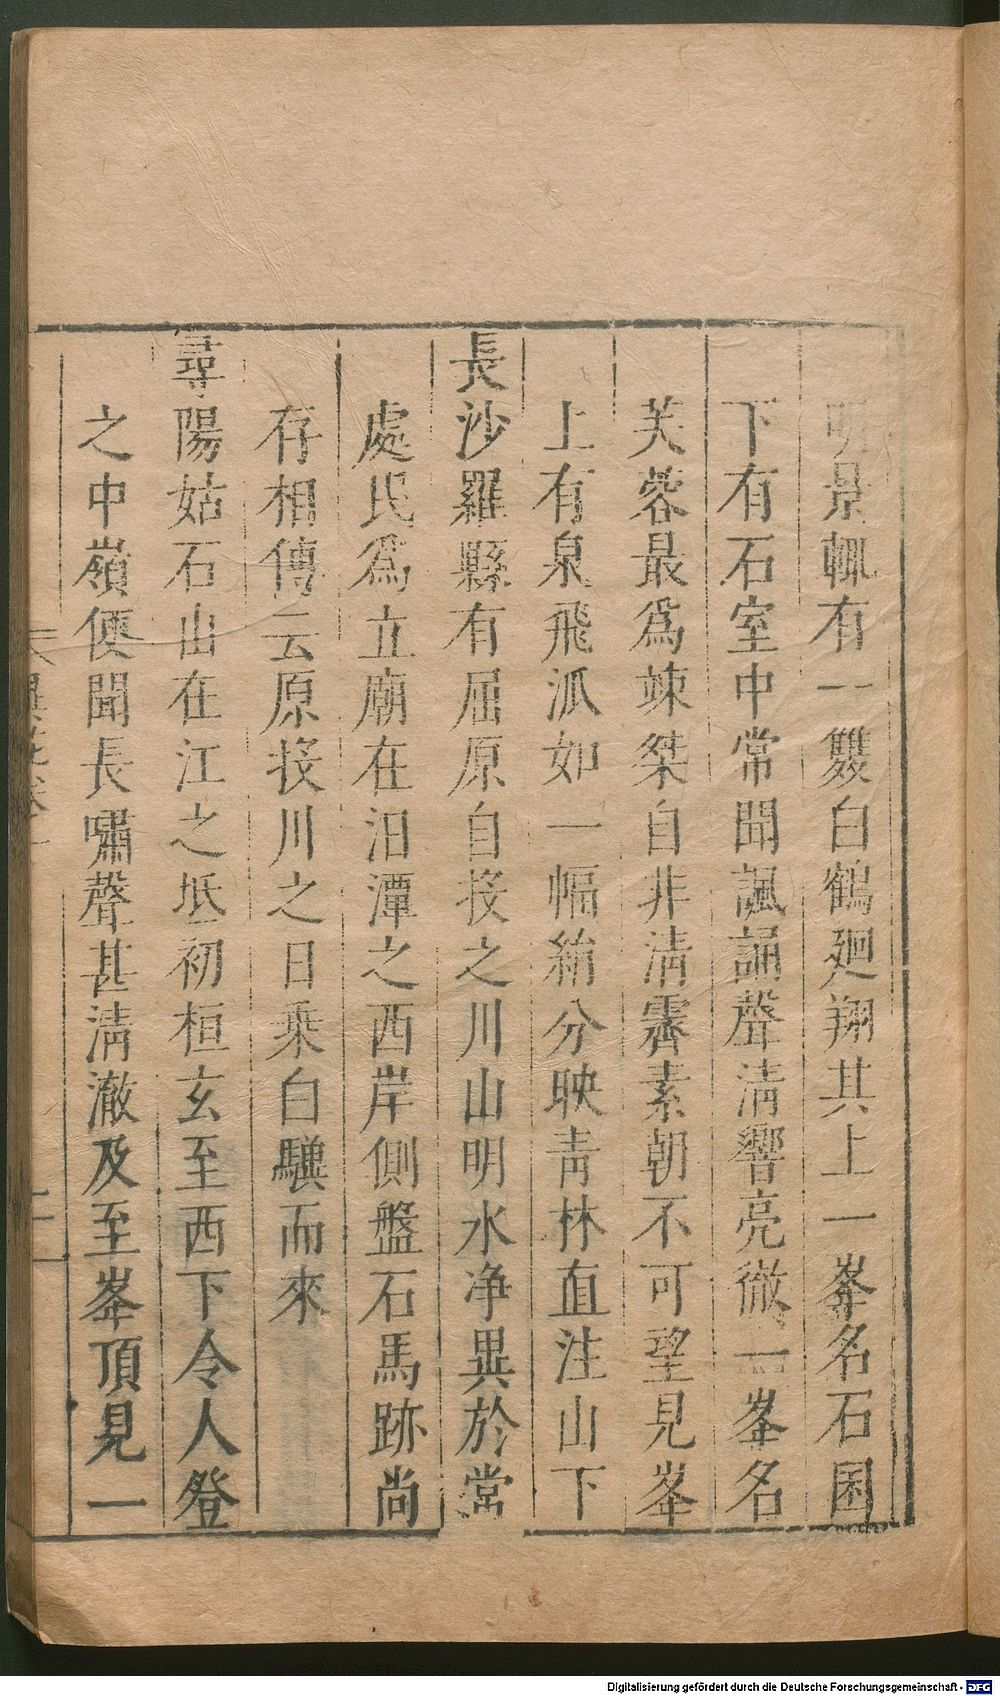 明景輒有一雙白鶴廻翔其上一峯名石囷
下有石室中常聞諷誦聲清響亮徹一峯名
芙蓉最爲竦桀自非清霽素朝不可望見峯
上有泉飛泒如一幅絹分映青林直注山下
長沙羅縣有屈原自投之川山明水净異於常
處民爲立廟在汨潭之西岸側盤石馬跡尚
存相傳云原投川之日乗白驥而來
尋陽姑石山在江之坻初桓玄至西下令人登
之中嶺便聞長嘯聲甚清澈及至峯頂見一
Digitalisierung gefördert durch die Deutsche Forschungsgemeinschaft - DFG